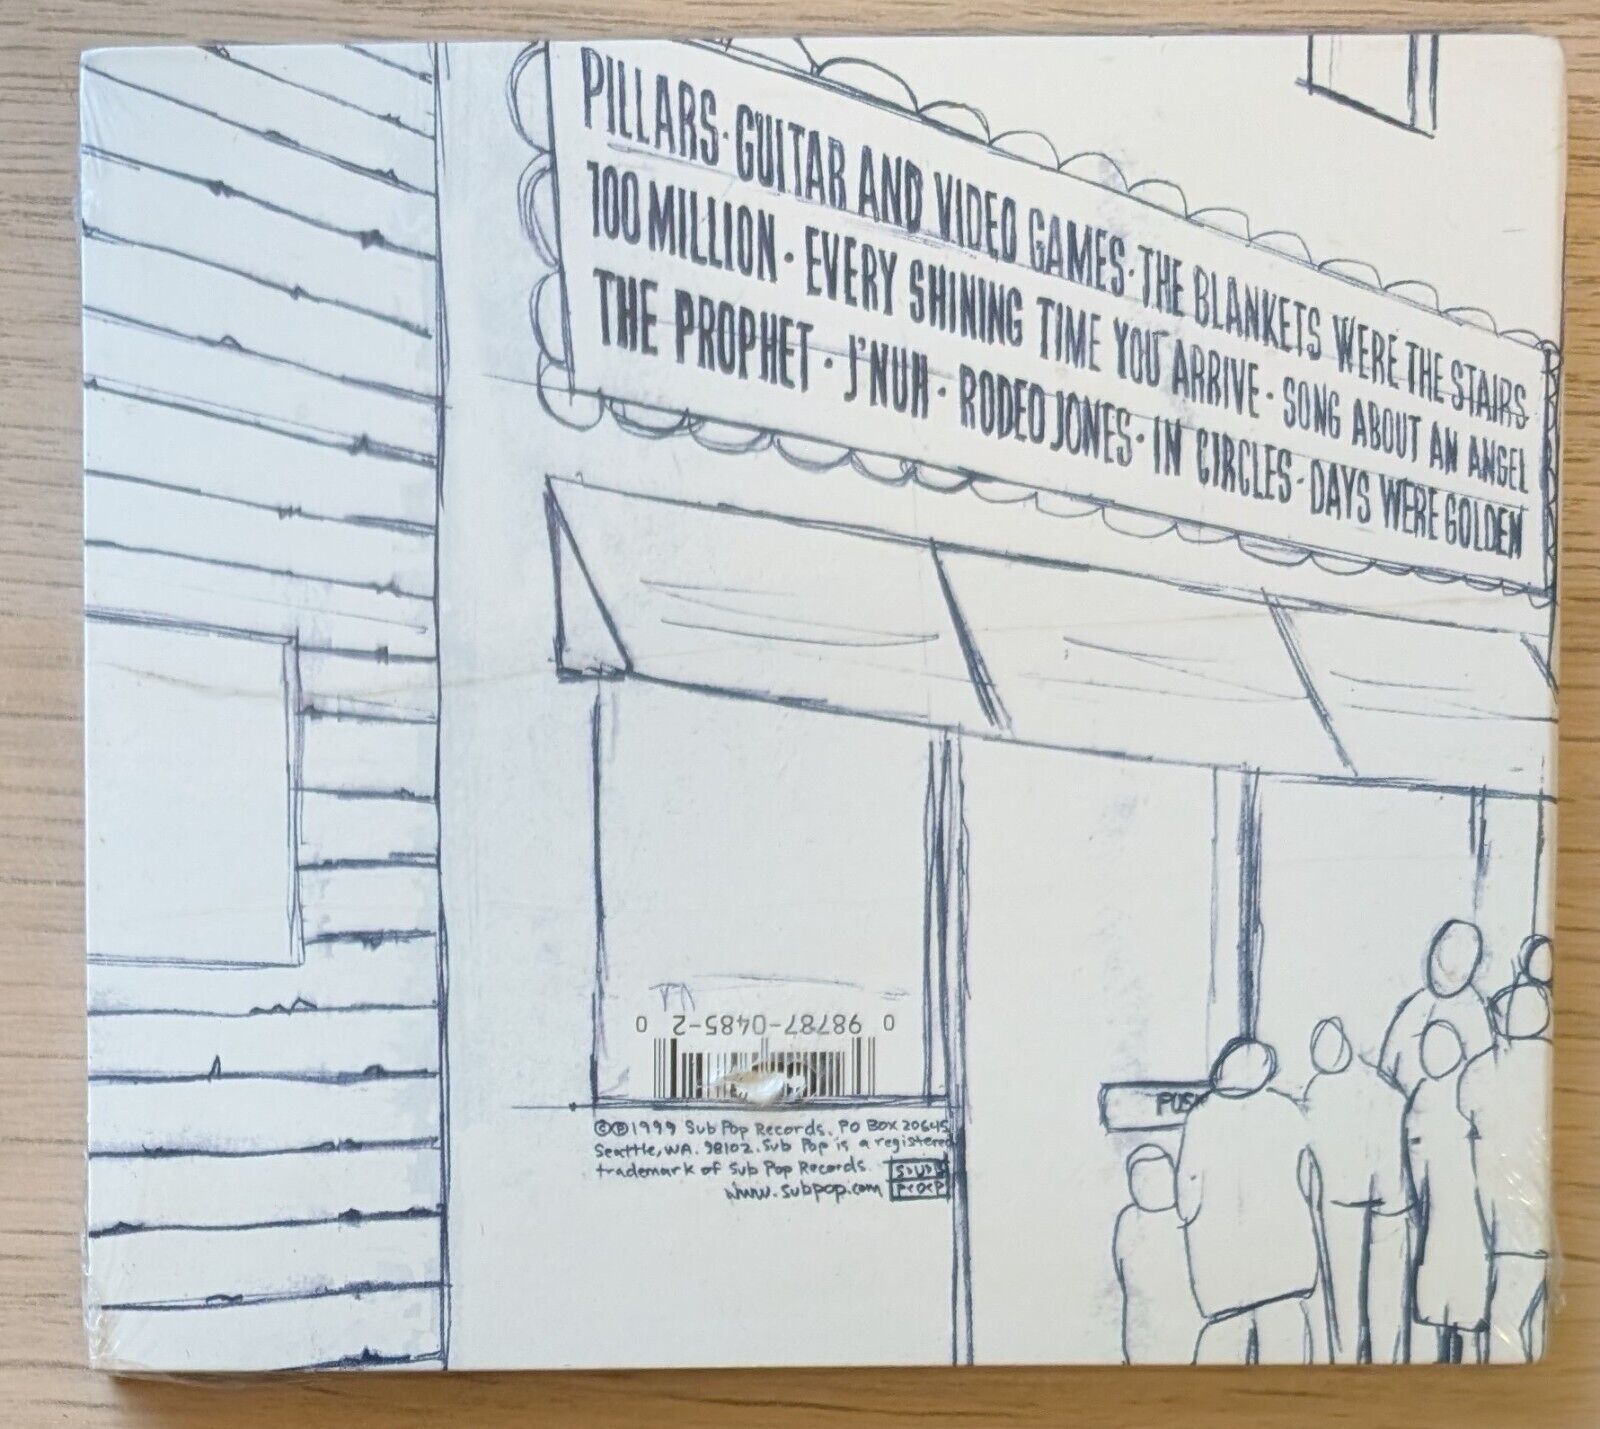 PILLARS · GUITAR AND VIDEO GAMES · THE BLANKETS WERE THE STAIRS
100 MILLION · EVERY SHINING TIME YOU ARRIVE · SONG ABOUT AN ANGEL
THE PROPHET · J'NUH · RODEO JONES · IN CIRCLES · DAYS WERE GOLDEN
0 98787-0485-2 0
PUSH
©℗1999 Sub Pop Records. PO Box 20645
Seattle, WA. 98102. Sub Pop is a registered
trademark of Sub Pop Records.
www.subpop.com
SUB
POP